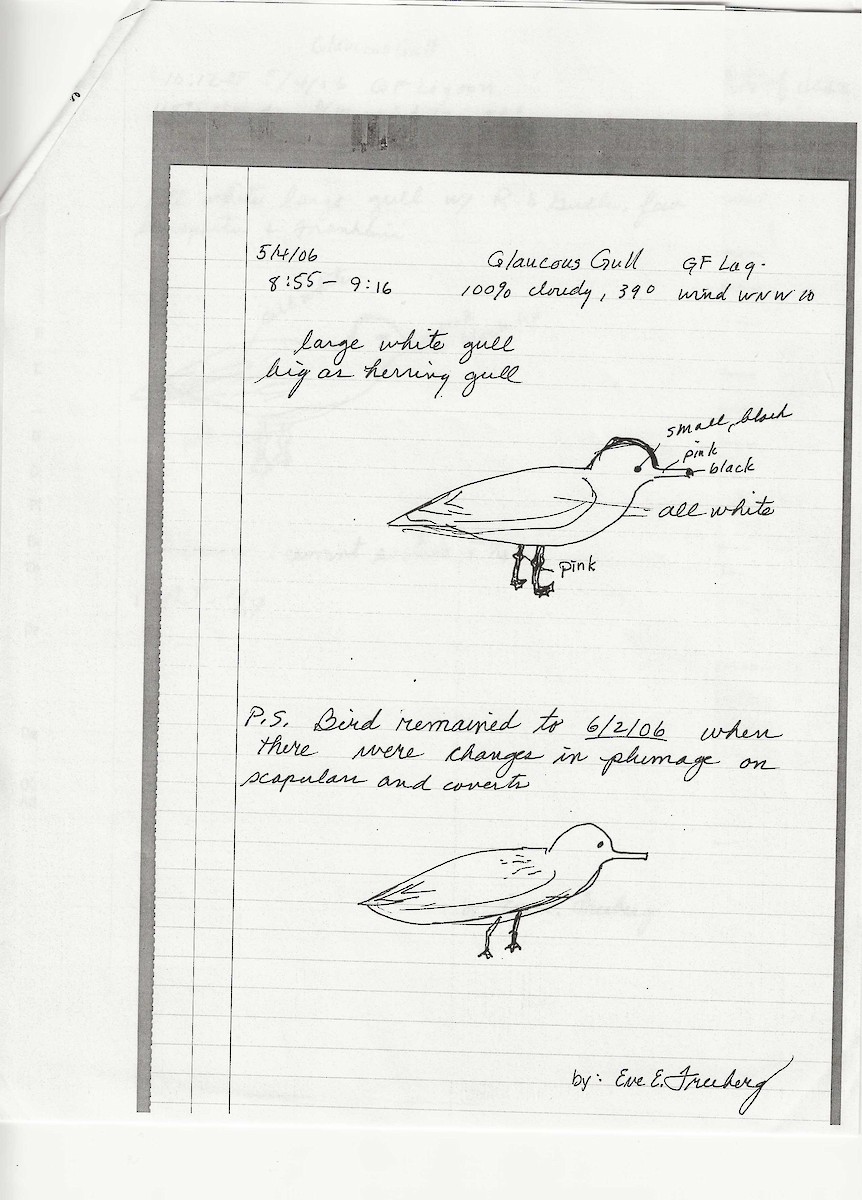 5/4/06 Glaucous Gull GF Lag.
8:55 - 9:16 100% cloudy, 39° wind WNW 10
large white gull
big as herring gull
small, black
pink
black
all white
pink
P.S. Bird remained to 6/2/06 when
there were changes in plumage on
scapulars and coverts
by: Eve E. Freeberg